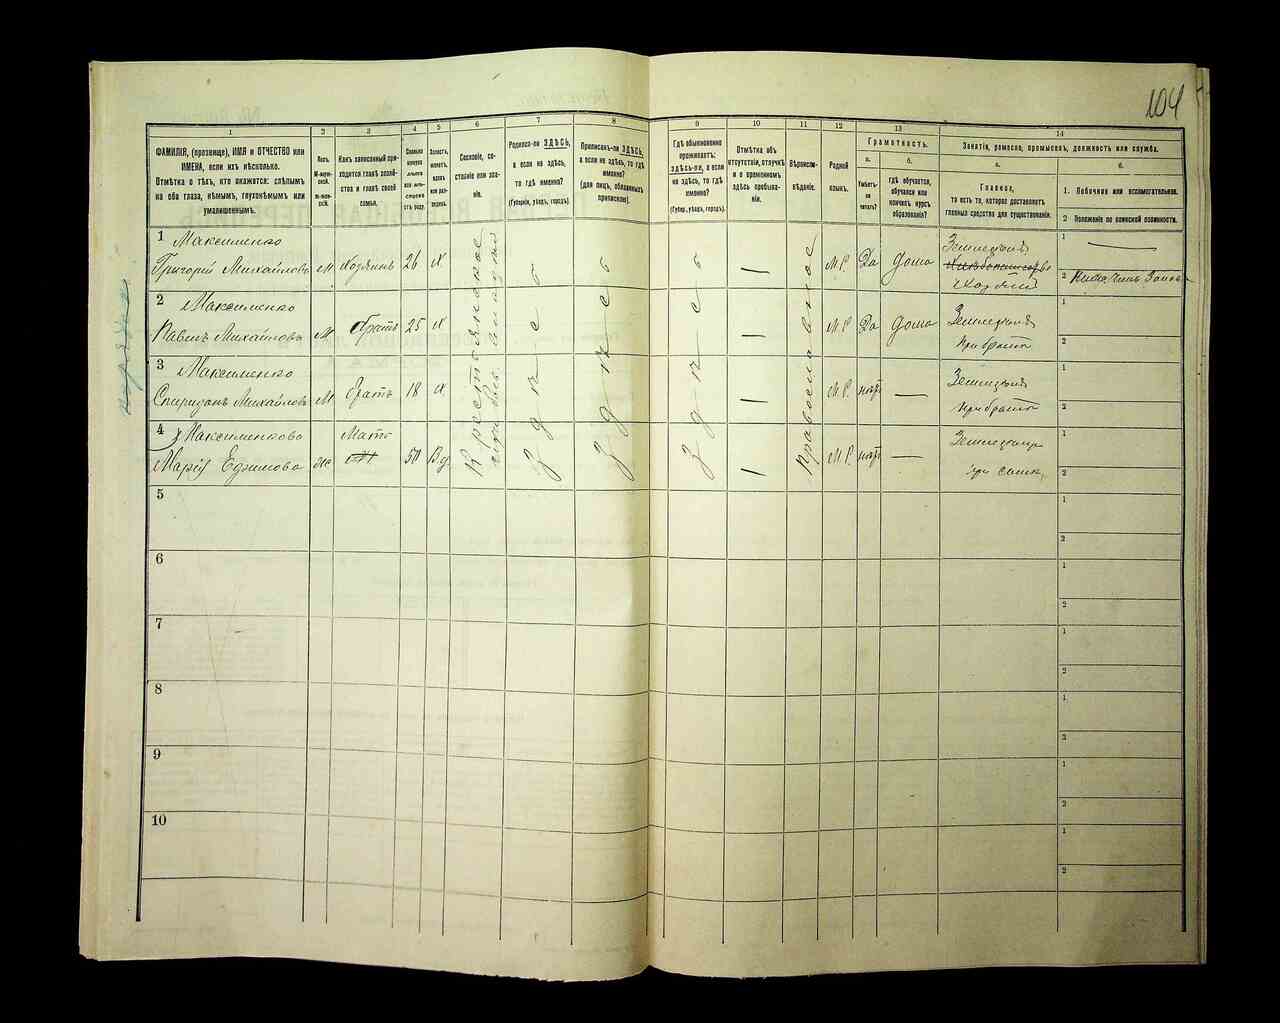 104
1
2
3
4
5
6
7
8
9
10
11
12
13
14
ФАМИЛІЯ, (прозвище), ИМЯ и ОТЧЕСТВО или
ИМЕНА, если ихъ нѣсколько.
Отмѣтка о тѣхъ, кто окажется: слѣпымъ
на оба глаза, нѣмымъ, глухонѣмымъ или
умалишеннымъ.
Полъ.
М-мужской.
Ж-женской.
Какъ записанный приходится
главѣ хозяйства
и главѣ своей
семьи.
Сколько
минуло
лѣтъ
Холостъ,
женатъ,
вдовъ
или разведенъ.
Сословіе, состояніе
или званіе.
Родился-ли ЗДѢСЬ,
а если не здѣсь,
то гдѣ именно?
(Губернія, уѣздъ, городъ).
Приписанъ-ли ЗДѢСЬ,
а если не здѣсь, то гдѣ
именно?
(для лицъ, обязанныхъ
припискою).
Гдѣ обыкновенно
проживаетъ:
здѣсь-ли, а если
не здѣсь, то гдѣ
именно?
(Губер., уѣздъ, городъ).
Отмѣтка объ
отсутствіи, отлучкѣ
и о временномъ
здѣсь пребываніи.
Вѣроисповѣданіе.
Родной
языкъ.
Грамотность.
а.
Умѣетъ-ли
читать?
б.
гдѣ обучается,
обучался или
кончилъ курсъ
образованія?
Занятіе, ремесло, промыселъ, должность или служба.
а.
Главное,
то есть то, которое доставляетъ
главныя средства для существованія.
б.
1. Побочное или вспомогательное.
2 Положеніе по воинской повинности.
1 Максименко
Григорій Михайловъ М Хозяинъ 26 Х М.Р. Да дома Земледѣлія
Хозяинъ
1
2
2 Максименко
Павелъ Михайловъ М братъ 25 Х М.Р. Да дома Земледѣлія
При братѣ
1
2
3 Максименко
Спиридонъ Михайловъ М братъ 18 Х М.Р. нѣтъ — Земледѣлія
При братѣ
1
2
4 Максименкова
Марія Ефимова Же Мать 50 Вд. М.Р. нѣтъ —
при сынѣ
1
2
Крестьянское
Здѣсь
Здѣсь
Здѣсь
Православное
5
1
2
6
1
2
7
1
2
8
1
2
9
1
2
10
1
2